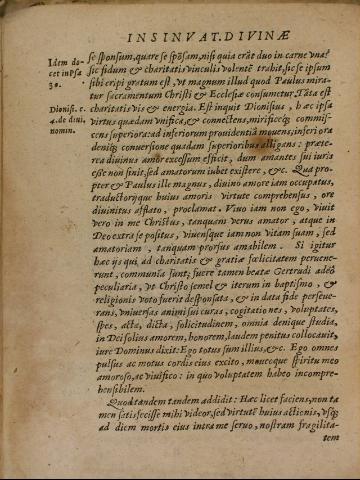 INSINVAT. DIVINÆ
Idem do-
cet in psa
30.
Dionis. c.
4. de diui.
nomin.
se sponsum, quare se spōsam, nisi quia erāt duo in carne vna?
sic fidum & charitatis vinculis volentē trahit, sic se ipsum
sibi eripi gratum est, vt magnum illud quod Paulus mira-
tur sacramentum Christi & Ecclesiæ consumetur. Tāta est
charitatis vis & energia. Est inquit Dionisius, hæc ipsa
virtus quædam vnifica, & connectens, mirificeq; commis-
cens superiora: ad inferiorum prouidentiā mouens, inferiora
deniq; conuersione quadam superioribus alligans: præte-
rea diuinus amor excessum efficit, dum amantes sui iuris
esse non sinit, sed amatorum iubet existere, &c. Qua pro-
pter & Paulus ille magnus, diuino amore iam occupatus,
traductorisque huius amoris virtute comprehensus, ore
diuinitus afflato, proclamat. Viuo iam non ego, viuit
vero in me Christus, tanquam verus amator, atque in
Deo extra se positus, viuensque iam non vitam suam, sed
amatoriam, tanquam prorsus amabilem. Si igitur
hæc ijs qui ad charitatis & gratiæ fœlicitatem perueне-
runt, communia sunt; fuere tamen beatæ Gertrudi adeò
peculiaria, vt Christo semel & iterum in baptismo, &
religionis voto fuerit desponsata, & in data fide perseue-
rans, vniuersas animi sui curas, cogitationes, voluptates,
spes, acta, dicta, solicitudinem, omnia denique studia,
in Dei solius amorem, honorem, laudem penitus collocauit,
iure Dominus dixit: Ego totus sum illius, &c. Ego omnes
pulsus ac motus cordis eius excito, moueoque spiritu meo
amoroso, ac viuifico: in quo voluptatem habeo incompre-
hensibilem.
Quod tandem tandem addidit: Hæc licet faciens, non ta
men satisfecisse mihi videor, sed virtutē huius actionis, vsq;
ad diem mortis eius intra me seruo, nostram fragilita-
tem